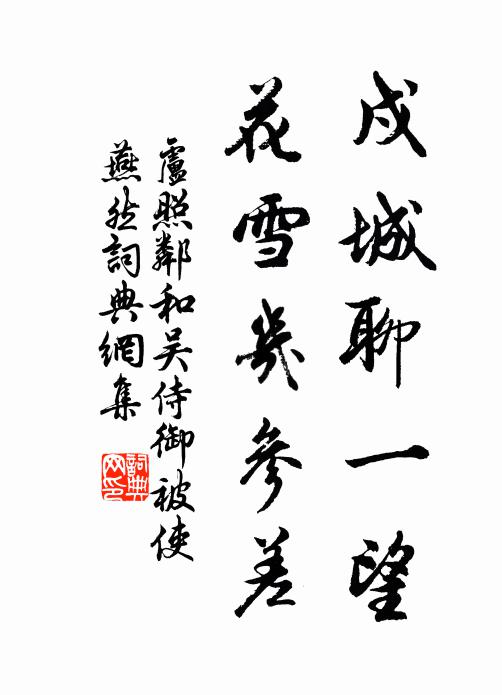 戍城聊一望
花雪幾參差
盧照鄰和吴侍御被使
燕然詞典網集
詞典
网印